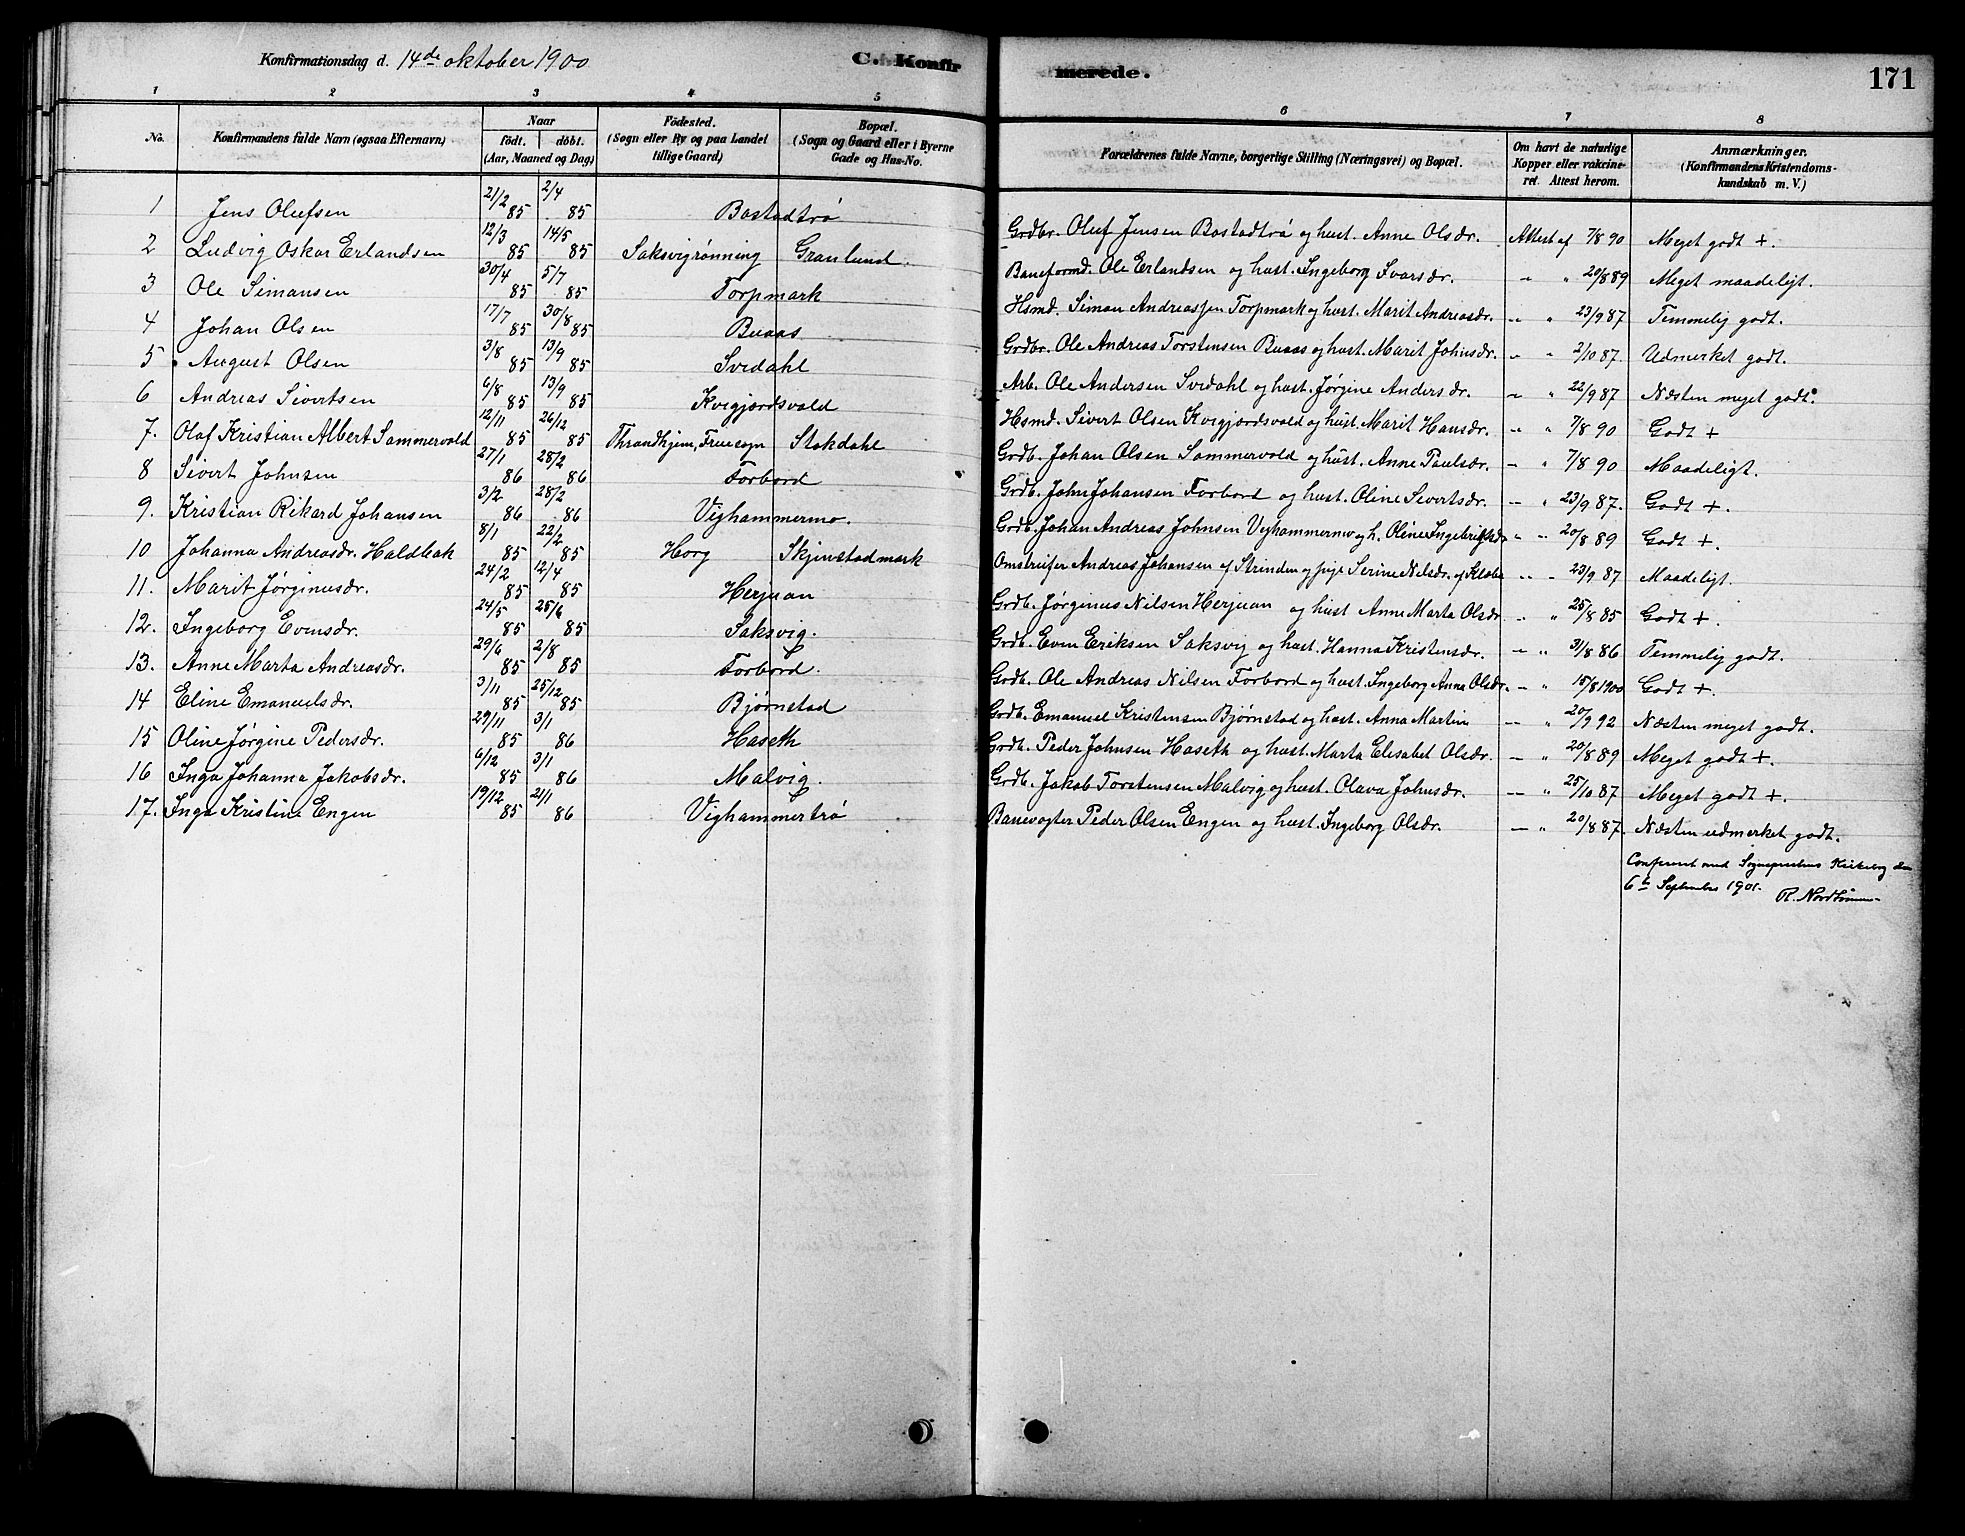 Konfirmationsdag d. 14de oktober 1900 C. Konfirmerede. 171
1 2 3 4 5 6 7 8
No. Konfirmandens fulde Navn (ogsaa Efternavn) Naar födt. döbt. (Aar, Maaned og Dag) Födested. (Sogn eller By og paa Landet tillige Gaard) Bopæl. (Sogn og Gaard eller i Byerne Gade og Hus-No. Forældrenes fulde Navne, borgerlige Stilling (Næringsvei) og Bopæl. Om havt de naturlige Kopper eller vakcineret. Attest herom. Anmærkninger. (Konfirmandens Kristendomskundskab m. V.)
1 Jens Olufsen 21/2 85 2/4 85 Bostadtrø Grdbr. Oluf Jensen Bostadtrø og hust. Anne Olsdr. Attest af 7/8 90 Meget godt +.
2 Ludvig Oskar Erlandsen 12/3 85 14/5 85 Saksvigrønning Granlund. Baneformd. Ole Erlandsen og hust. Ingeborg Ivarsdr. " " 20/8 89 Meget maadeligt.
3 Ole Simansen 30/4 85 5/7 85 Torpmark Hsmd. Siman Andreassen Torpmark og hust. Marit Andreasdr. " " 23/9 87 Temmelig godt.
4 Johan Olsen 17/7 85 30/8 85 Buaas Grdbr. Ole Andreas Torstensen Buaas og hust. Marit Johnsdr. " " 2/10 87. Udmerket godt.
5 August Olsen 3/8 85 13/9 85 Svedahl Arb. Ole Andersen Svedahl og hust. Jørgine Andersdr. " " 22/9 87 Næsten meget godt.
6 Andreas Sivertsen 6/8 85 13/9 85 Kvigjordsvald Hsmd. Sivert Olsen Kvigjordsvald og hust. Marit Hansdr. " " 7/8 90 Godt +
7. Olaf Kristian Albert Sommervold 12/11 85 26/12 85 Thrandhjem, Fruesogn Stokdahl Grdb. Johan Olsen Sommervold og hust. Anne Paulsdr. — " 7/8 90 Maadeligt.
8 Sivert Johnsen 27/1 86 28/2 86 Forbord Grdb. John Johansen Forbord og hust. Oline Sivertsdr. — " 23/9 87. Godt +.
9. Kristian Rikard Johansen 3/2 86 28/2 86 Vighammermo. Grdb. Johan Andreas Johnsen Vighammermo og h. Oline Ingebrigtsdr " " 20/8 89 Godt +.
10 Johanna Andreasdr. Haldbak 8/1 85 22/2 85 Horg Skjenstadmark Omstreifer Andreas Johansen af Strinden og pige Serine Nilsdr. af Klæbo " " 23/9 87 Maadeligt.
11. Marit Jørginusdr. 24/2 85 12/4 85 Herjuan Grdb. Jørginus Nilsen Herjuan og hust Anne Marta Olsdr " " 25/8 85 Godt +.
12. Ingeborg Evensdr. 24/5 85 25/6 85 Saksvig. Grdb. Even Eriksen Saksvig og hust. Hanna Kristensdr. — " 31/8 86 Temmelig godt.
13. Anne Marta Andreasdr. 29/6 85 2/8 85 Forbord. Grdb. Ole Andreas Nilsen Forbord og hust. Ingeborg Anna Olsdr. — " 15/8 1900 Godt +.
14 Eline Emanuelsdr. 3/11 85 25/12 85 Bjørnstad Grdb. Emanuel Kristensen Bjørnstad og hust. Anna Martin — " 20/9 92 Næsten meget godt.
15 Oline Jørgine Pedersdr. 29/11 85 3/1 86 Haseth Grdb. Peder Johnsen Haseth og hust. Marta Elisabet Olsdr. — " 20/8 89 Meget godt +.
16 Inga Johanna Jakobsdr. 6/12 85 3/1 86 Malvig. Grdb. Jakob Torstensen Malvig og hust. Olava Johnsdr. — " 25/10 87 Meget godt +.
17. Inga Kristine Engen 19/12 85 2/1 86 Vighammertrø Banevogter Peder Olsen Engen og hust. Ingeborg Olsdr. — " 20/8 87. Næsten udmerket godt.
Conferert med Sognepræstens Kirkebog den
6te September 1901.
R. Nordtømme